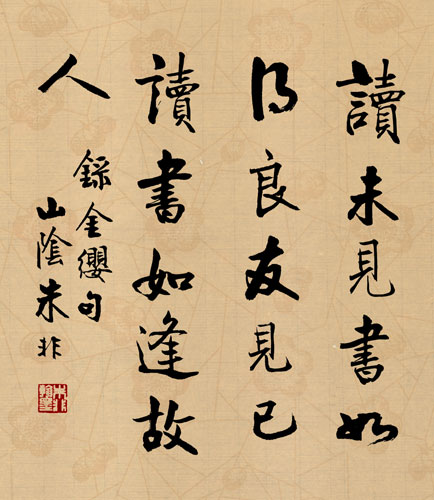 讀未見書如
得良友見已
讀書如逢故
人
錄金纓句
山陰朱非